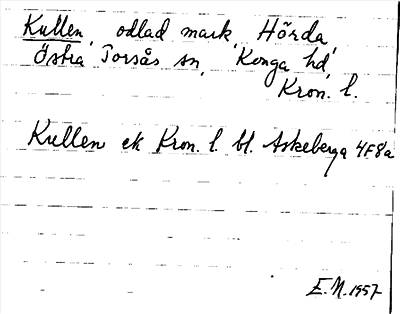 Kullen, odlad mark, Hörda,
Östra Torsås sn, Konga hd,
Kron. l.
Kullen ek Kron. l. bl. Askeberga 4F8a
E.M. 1957